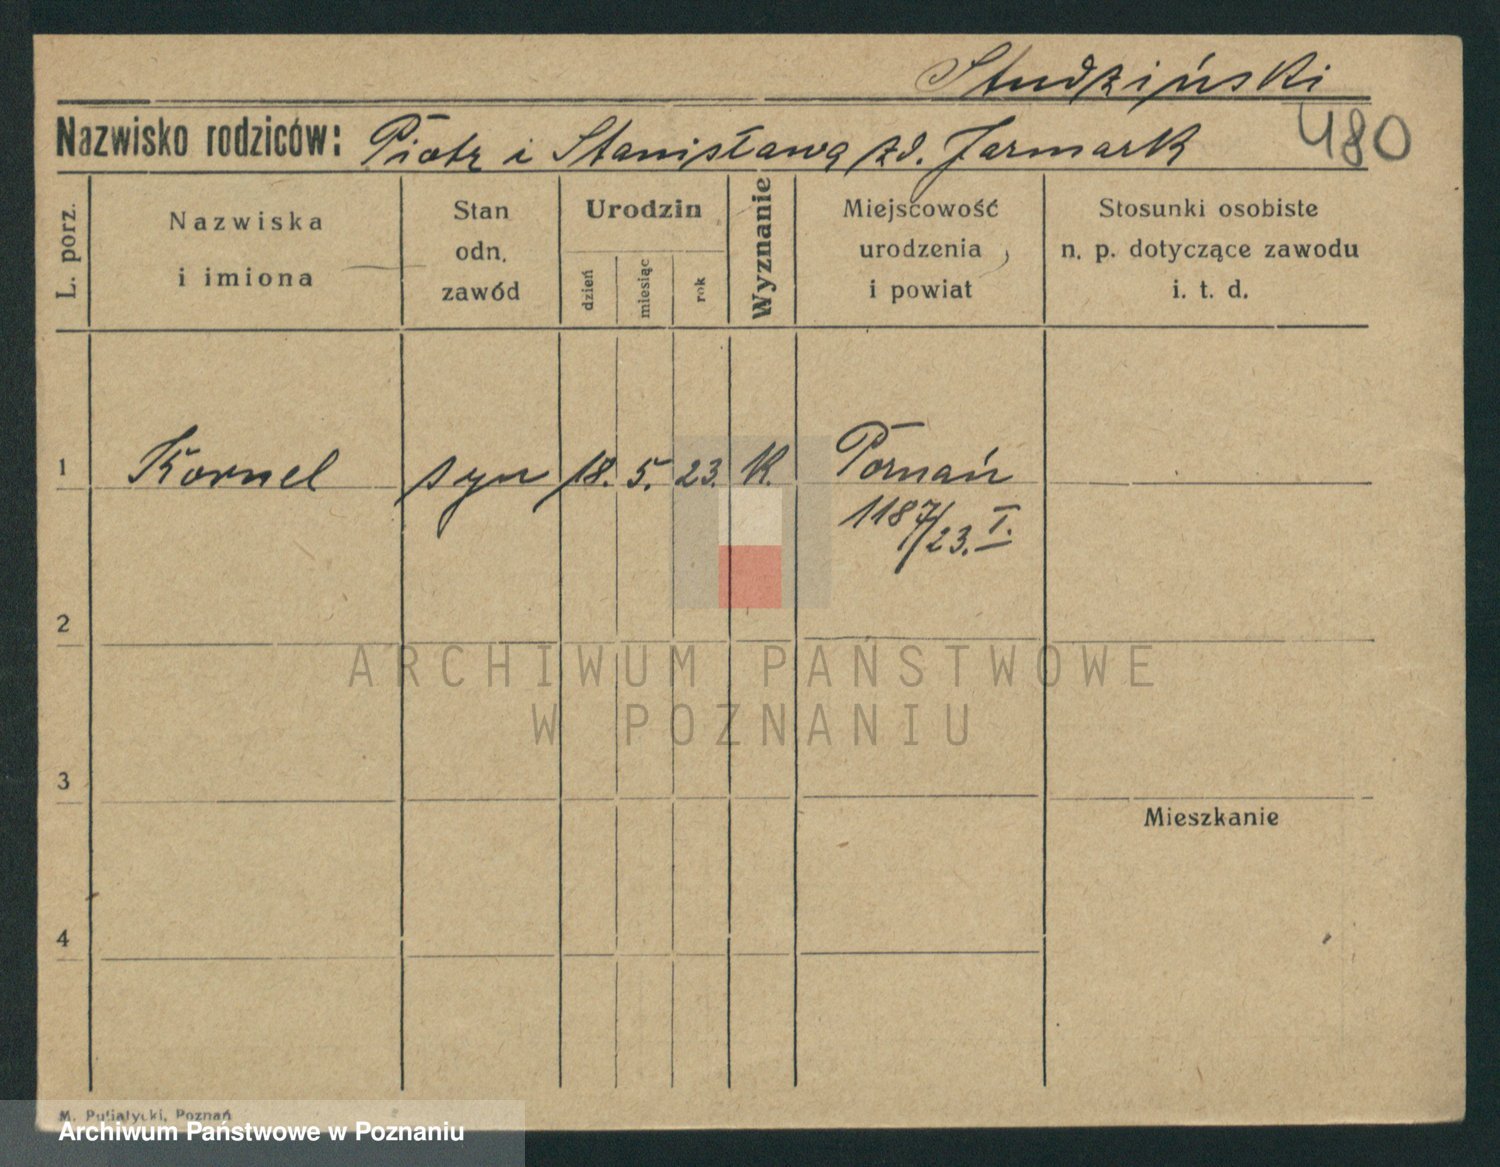 Studziński
Nazwisko rodziców: Piotr i Stanisława zd. Jarmark
480
L. porz.
Nazwiska
i imiona
Stan
odn.
zawód
Urodzin
dzień
miesiąc
rok
Wyznanie
Miejscowość
urodzenia
i powiat
Stosunki osobiste
n. p. dotyczące zawodu
i. t. d.
1 Kornel syn 18. 5. 23. K. Poznań
1187/23. I.
2
ARCHIWUM PAŃSTWOWE
W POZNANIU
3
Mieszkanie
4
M. Putiatycki, Poznań
Archiwum Państwowe w Poznaniu